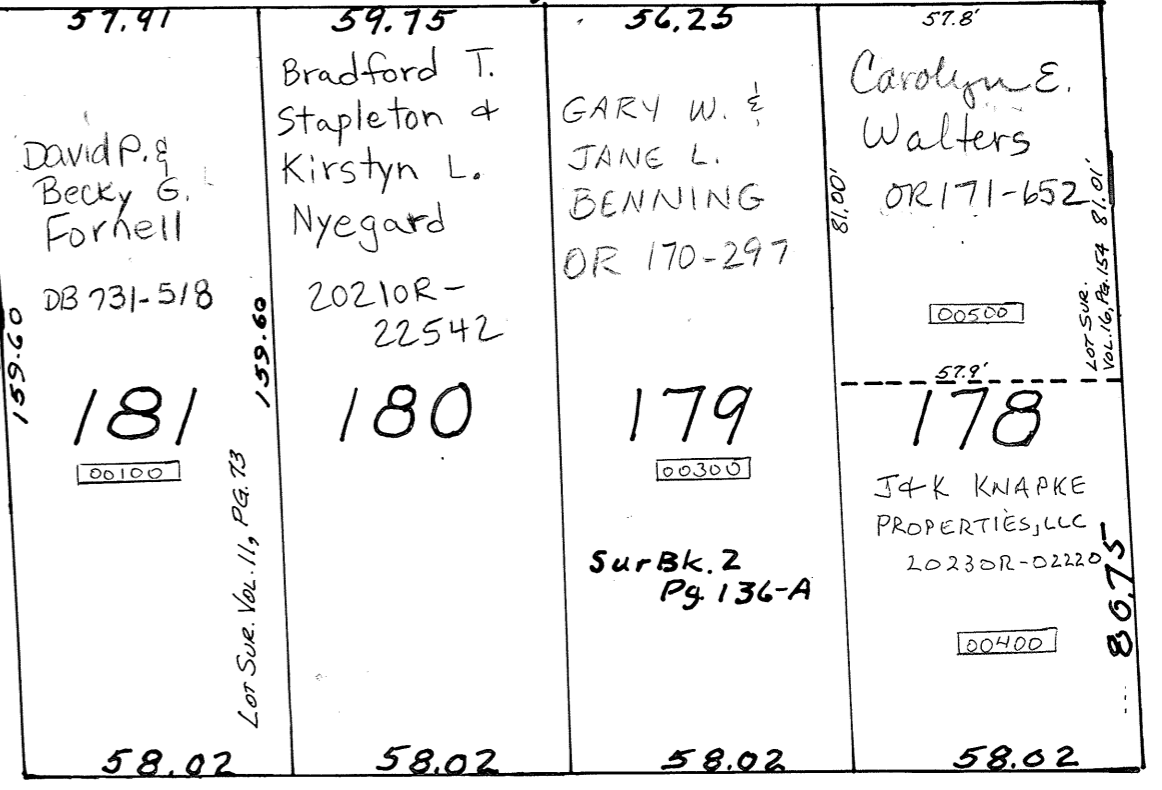 57.91
David P. &
Becky G.
Fornell
DB 731-518
159.60
159.60
181
00100
LOT SUR. VOL. 11, PG. 73
58.02
59.75
Bradford T.
Stapleton &
Kirstyn L.
Nyegard
2021OR-
22542
180
58.02
56.25
GARY W. &
JANE L.
BENNING
OR 170-297
179
00300
Sur Bk. 2
Pg. 136-A
58.02
57.8'
Carolyn E.
Walters
OR 171-652
81.00'
81.01'
LOT SUR.
VOL. 16, PG. 154
00500
57.9'
178
J&K KNAPKE
PROPERTIES, LLC
2023OR-02220
00400
58.02